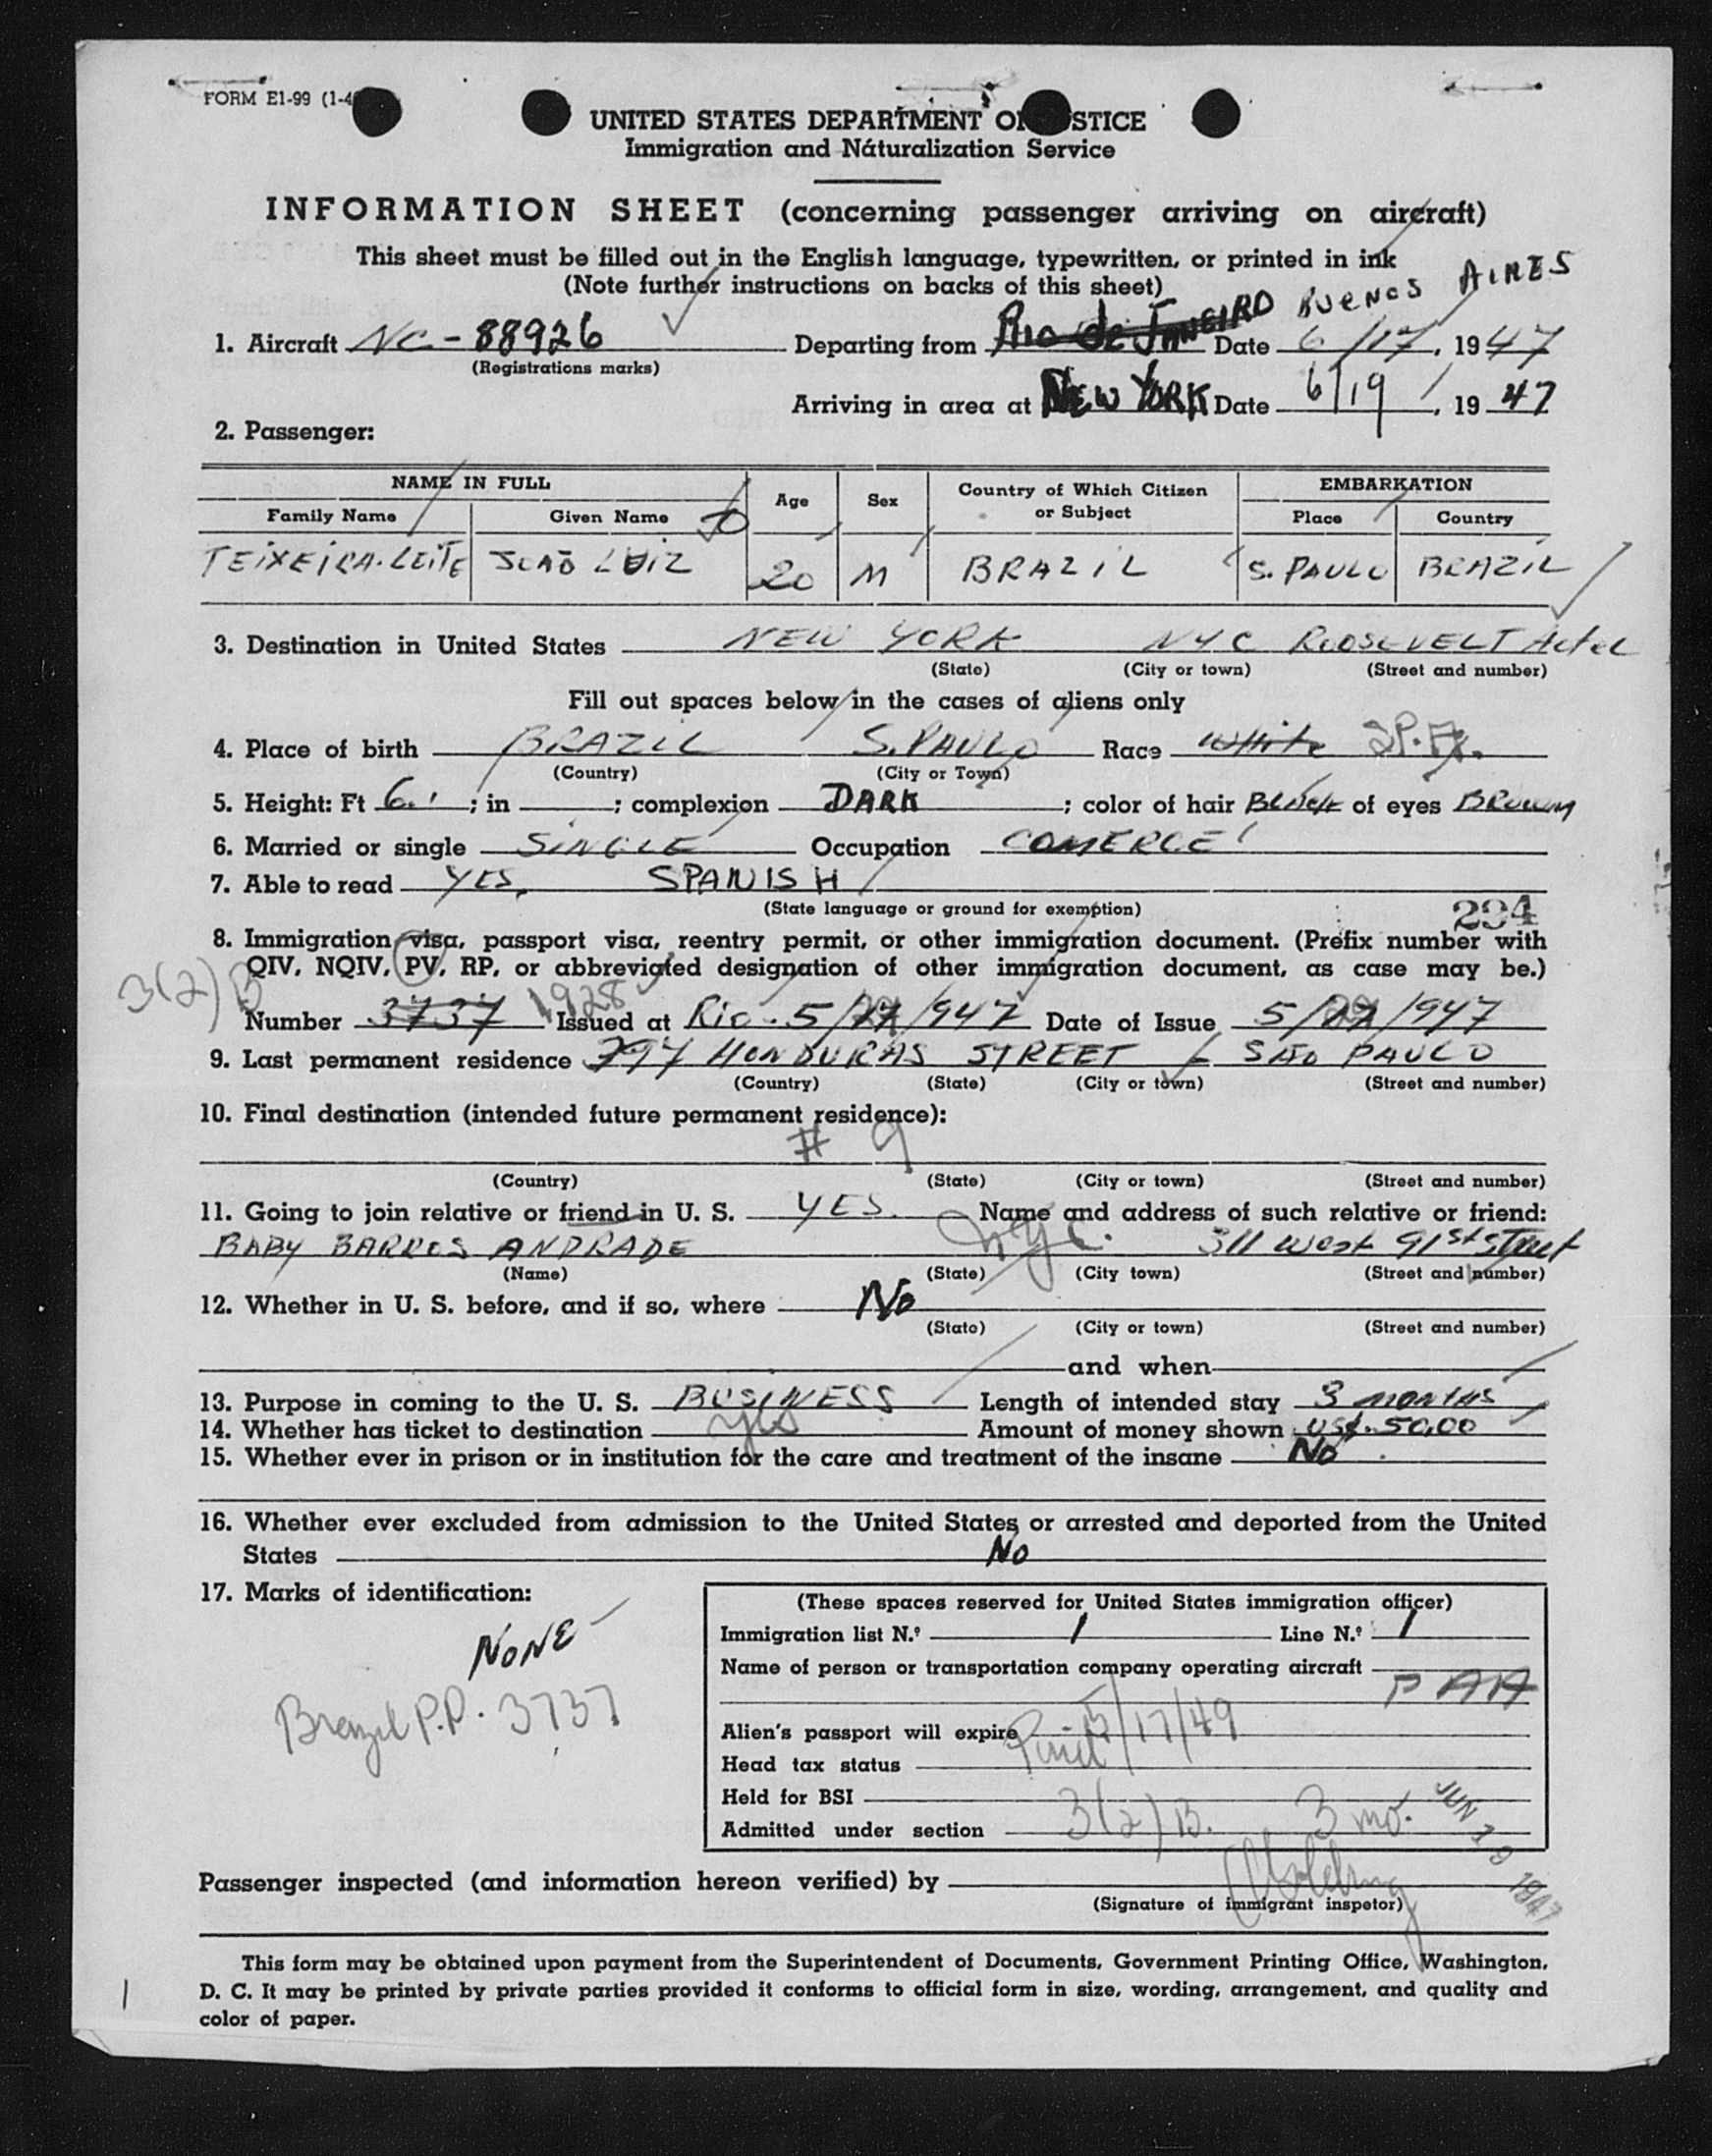 FORM E1-99
UNITED STATES DEPARTMENT OF JUSTICE
Immigration and Naturalization Service
INFORMATION SHEET (concerning passenger arriving on aircraft)
This sheet must be filled out in the English language, typewritten, or printed in ink
(Note further instructions on backs of this sheet)
1. Aircraft NC-88926 Departing from Rio de JANEIRO BUENOS AIRES Date 6/17, 1947
(Registrations marks)
Arriving in area at NEW YORK Date 6/19, 1947
2. Passenger:
NAME IN FULL Age Sex Country of Which Citizen or Subject EMBARKATION
Family Name Given Name Place Country
TEIXEIRA-LEITE JOÃO LUIZ 20 M BRAZIL S. PAULO BRAZIL
3. Destination in United States NEW YORK NYC ROOSEVELT Hotel
(State) (City or town) (Street and number)
Fill out spaces below in the cases of aliens only
4. Place of birth BRAZIL S. PAULO Race White
(Country) (City or Town)
5. Height: Ft 6.1; in ; complexion DARK; color of hair BLACK of eyes BROWN
6. Married or single SINGLE Occupation COMERCE
7. Able to read YES, SPANISH
(State language or ground for exemption)
294
8. Immigration visa, passport visa, reentry permit, or other immigration document. (Prefix number with
QIV, NQIV, PV, RP, or abbreviated designation of other immigration document, as case may be.)
3(2) B
Number 3737 1928 Issued at Rio - 5/ /947 Date of Issue 5/ /947
9. Last permanent residence 797 HONDURAS STREET - SÃO PAULO
(Country) (State) (City or town) (Street and number)
10. Final destination (intended future permanent residence):
# 9
(Country) (State) (City or town) (Street and number)
11. Going to join relative or friend in U. S. YES. Name and address of such relative or friend:
BABY BARROS ANDRADE NYC. 311 West 91st Street
(Name) (State) (City town) (Street and number)
12. Whether in U. S. before, and if so, where No
(State) (City or town) (Street and number)
and when
13. Purpose in coming to the U. S. BUSINESS Length of intended stay 3 MONTHS
14. Whether has ticket to destination yes Amount of money shown US$. 50,00
15. Whether ever in prison or in institution for the care and treatment of the insane No
16. Whether ever excluded from admission to the United States or arrested and deported from the United
States No
17. Marks of identification:
NONE
Brazil P.P. 3737
(These spaces reserved for United States immigration officer)
Immigration list N.º 1 Line N.º 1
Name of person or transportation company operating aircraft
PAA
Alien's passport will expire 5/17/49
Head tax status
Held for BSI
Admitted under section 3(2) B. 3 mo.
JUN 19 1947
Passenger inspected (and information hereon verified) by
(Signature of immigrant inspetor)
This form may be obtained upon payment from the Superintendent of Documents, Government Printing Office, Washington,
D. C. It may be printed by private parties provided it conforms to official form in size, wording, arrangement, and quality and
color of paper.
1